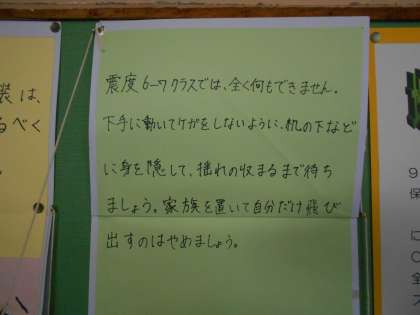 震度6-7クラスでは、全く何もできません。
下手に動いてケガをしないように、机の下など
に身を隠して、揺れの収まるまで待ち
ましょう。家族を置いて自分だけ飛び
出すのはやめましょう。
装は、
るべく
9
保
に
全